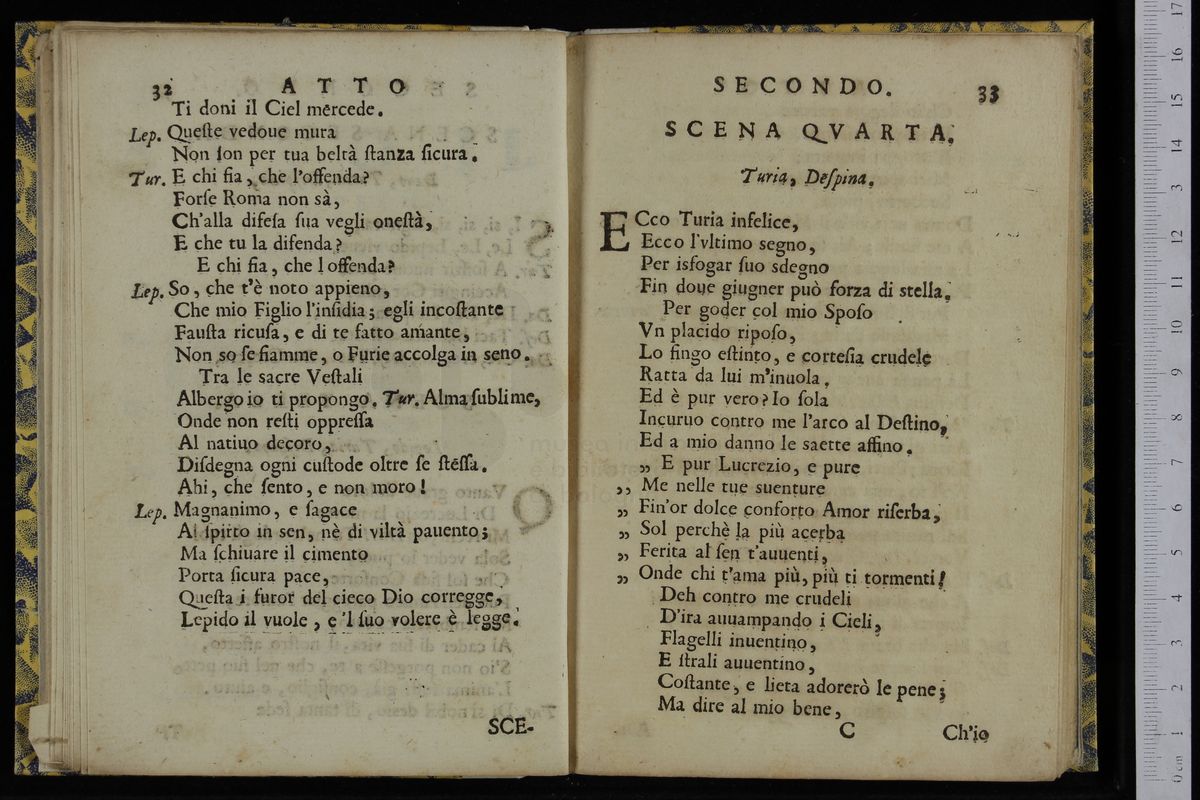 32 ATTO
Ti doni il Ciel mercede.
Lep. Queſte vedoue mura
Non ſon per tua beltà ſtanza ſicura.
Tur. E chi fia, che l'offenda?
Forſe Roma non sà,
Ch'alla difeſa ſua vegli oneſtà,
E che tu la difenda?
E chi fia, che l offenda?
Lep. So, che t'è noto appieno,
Che mio Figlio l'inſidia; egli incoſtante
Fauſta ricuſa, e di te fatto amante,
Non so ſe fiamme, o Furie accolga in seno.
Tra le sacre Veſtali
Albergo io ti propongo. Tur. Alma ſublime,
Onde non reſti oppreſſa
Al natiuo decoro,
Diſdegna ogni cuſtode oltre ſe ſteſſa.
Ahi, che ſento, e non moro!
Lep. Magnanimo, e ſagace
Al ſpirto in sen, nè di viltà pauento;
Ma ſchiuare il cimento
Porta ſicura pace,
Queſta i furor del cieco Dio corregge,
Lepido il vuole, e 'l ſuo volere è legge.
SCE-
SECONDO. 33
SCENA QVARTA.
Turia, Deſpina.
ECco Turia infelice,
Ecco l'vltimo segno,
Per isfogar ſuo sdegno
Fin doue giugner può forza di stella.
Per goder col mio Spoſo
Vn placido ripoſo,
Lo fingo eſtinto, e corteſia crudele
Ratta da lui m'inuola.
Ed è pur vero? Io ſola
Incuruo contro me l'arco al Deſtino,
Ed a mio danno le saette affino.
„ E pur Lucrezio, e pure
„ Me nelle tue suenture
„ Fin'or dolce conforto Amor riſerba,
„ Sol perchè la più acerba
„ Ferita al ſen t'auuenti,
„ Onde chi t'ama più, più ti tormenti!
Deh contro me crudeli
D'ira auuampando i Cieli,
Flagelli inuentino,
E ſtrali auuentino,
Coſtante, e lieta adorerò le pene;
Ma dire al mio bene,
C Ch'io